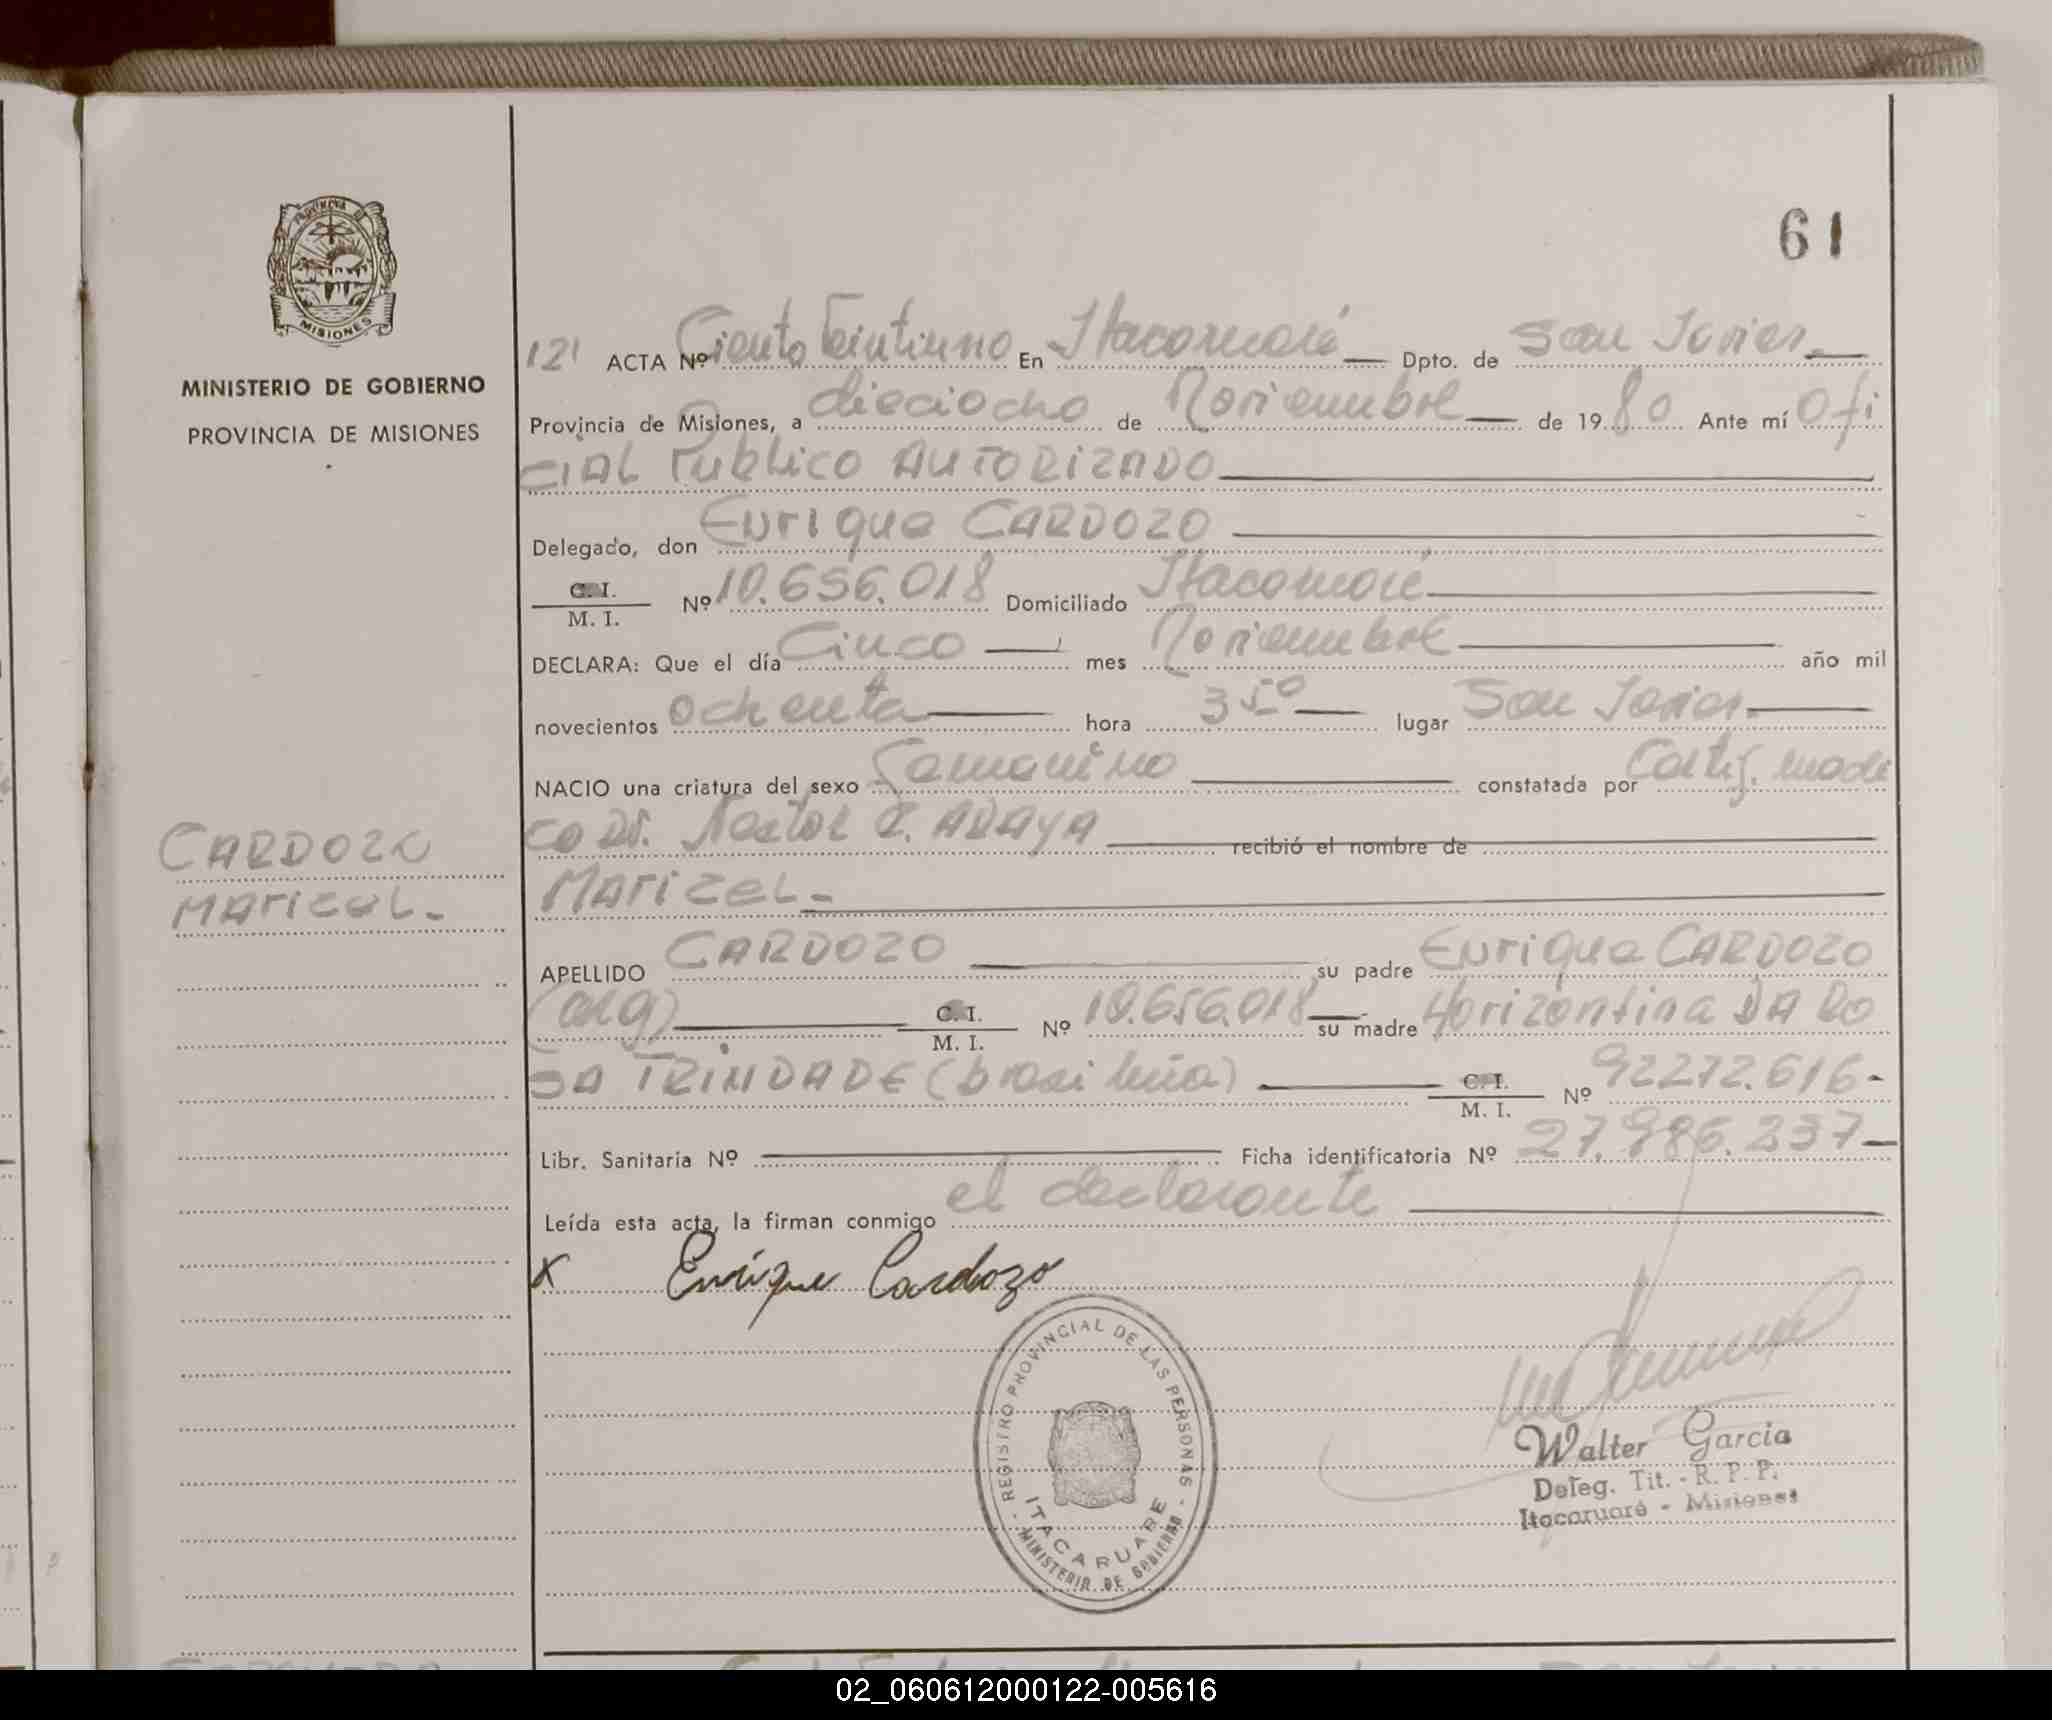 61
PROVINCIA DE
MISIONES
MINISTERIO DE GOBIERNO
PROVINCIA DE MISIONES
121 ACTA Nº Ciento Veintiuno En Itacaruaré Dpto. de San Javier.
Provincia de Misiones, a dieciocho de Noviembre de 1980 Ante mí Ofi
CIAL Publico AUTORIZADO
Delegado, don Enrique CARDOZO
C. I.
M. I. Nº 10.656.018 Domiciliado Itacaruaré
DECLARA: Que el día Cinco mes Noviembre año mil
novecientos ochenta hora 3 50 lugar San Javier.
NACIO una criatura del sexo Femenino constatada por Certif. medi
co Dr. Nestor R. ADAYA recibió el nombre de
MARIZEL -
CARDOZO
MARIZEL -
APELLIDO CARDOZO su padre Enrique CARDOZO
(arg) C. I. M. I. Nº 10.656.018 su madre Horizontina DA RO
SA TRINDADE (brasileña) C. I. M. I. Nº 92272.616 -
Libr. Sanitaria Nº Ficha identificatoria Nº 27.986.237
Leída esta acta, la firman conmigo el declarante
x Enrique Cardozo
REGISTRO PROVINCIAL DE LAS PERSONAS
ITACARUARE
MINISTERIO DE GOBIERNO
Walter Garcia
Deleg. Tit. - R. P. P.
Itacaruaré - Misiones
02_060612000122-005616